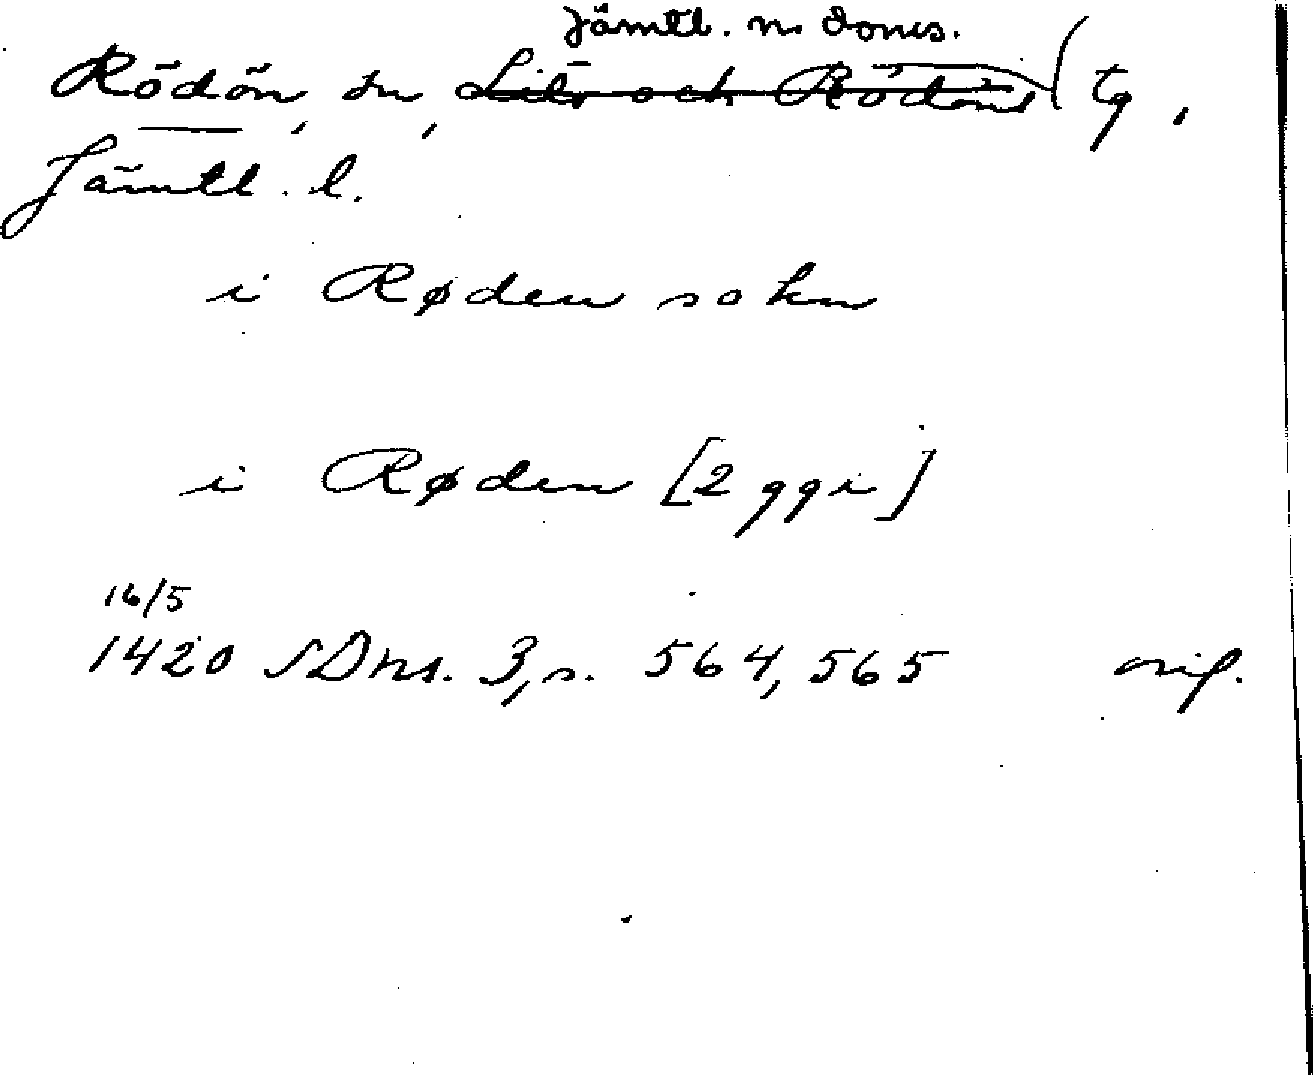 Jämtl. n. doms.
Rödön, sn, Lits och Rödöns tg,
Jämtl. l.
i Røden sokn
i Røden [2 ggr]
16/5
1420 SDns. 3, s. 564, 565 orig.